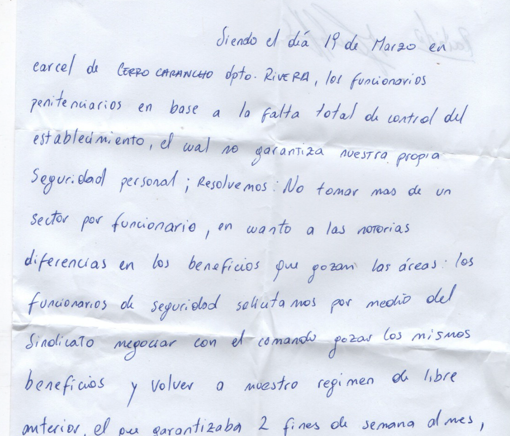 Siendo el día 19 de Marzo en
carcel de CERRO CARANCHO dpto. RIVERA, los funcionarios
penitenciarios en base a la falta total de control del
establecimiento, el cual no garantiza nuestra propia
Seguridad personal; Resolvemos: No tomar mas de un
sector por funcionario, en cuanto a las notorias
diferencias en los beneficios que gozan las áreas: los
funcionarios de seguridad solicitamos por medio del
Sindicato negociar con el comando gozar los mismos
beneficios y volver a nuestro regimen de libre
anterior, el que garantizaba 2 fines de semana al mes,